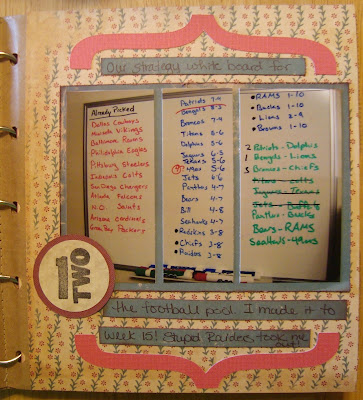 Our strategy white board for
Already Picked
Dallas Cowboys
Minnesota Vikings
Baltimore Ravens
Philadelphia Eagles
Pittsburgh Steelers
Indianapolis Colts
San Diego Chargers
Atlanta Falcons
N.O. Saints
Arizona Cardinals
Green Bay Packers
Patriots 7-4
Bengals
Broncos
Titans 5-6
Dolphins 5-6
Jaguars 6-5
Texans 5-6
49ers 5-6
Jets
Panthers 4-7
Bears 4-7
Bill 4-8
Seahawks 4-7
• Redskins 3-8
• Chiefs 3-8
• Raiders 3-8
• RAMS 1-10
• Bucks 1-10
• Lions 2-9
• Browns 1-10
2 Patriots - Dolphins
1 Bengals - Lions
3 Broncos - Chiefs
Titans - Colts
Jaguars - Texans
Jets -
Panthers - Bucks
Bears - RAMS
Seahawks - 49ers
1
TWO
the football pool. I made it to
week 15! Stupid Raiders took me
out!